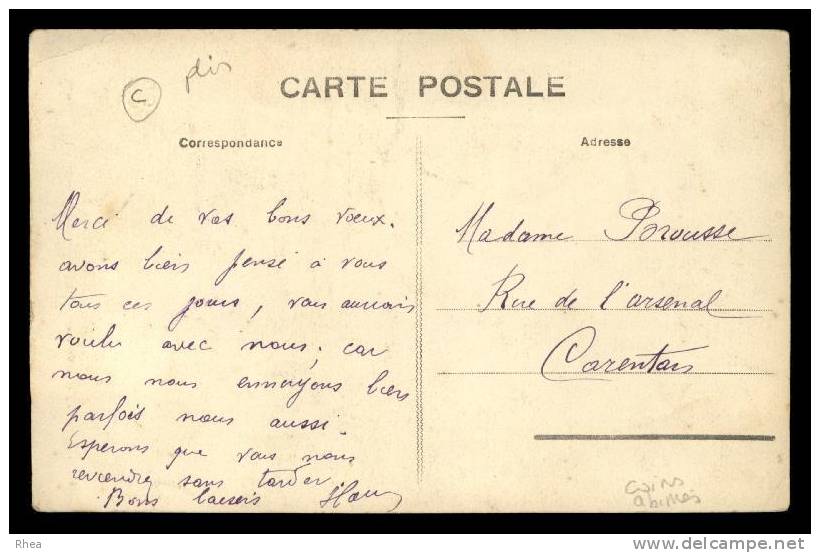 C plis
CARTE POSTALE
Correspondance
Adresse
Merci de vos bons voeux.
avons bien pensé à vous
tous ces jours, vous aurions
voulu avec nous, car
nous nous ennuyons bien
parfois nous aussi.
Esperons que vous nous
reviendrez sans tarder
Bons baisers
Madame Brousse
Rue de l'arsenal
Carentan
coins
abimés
Rhea
www.delcampe.net